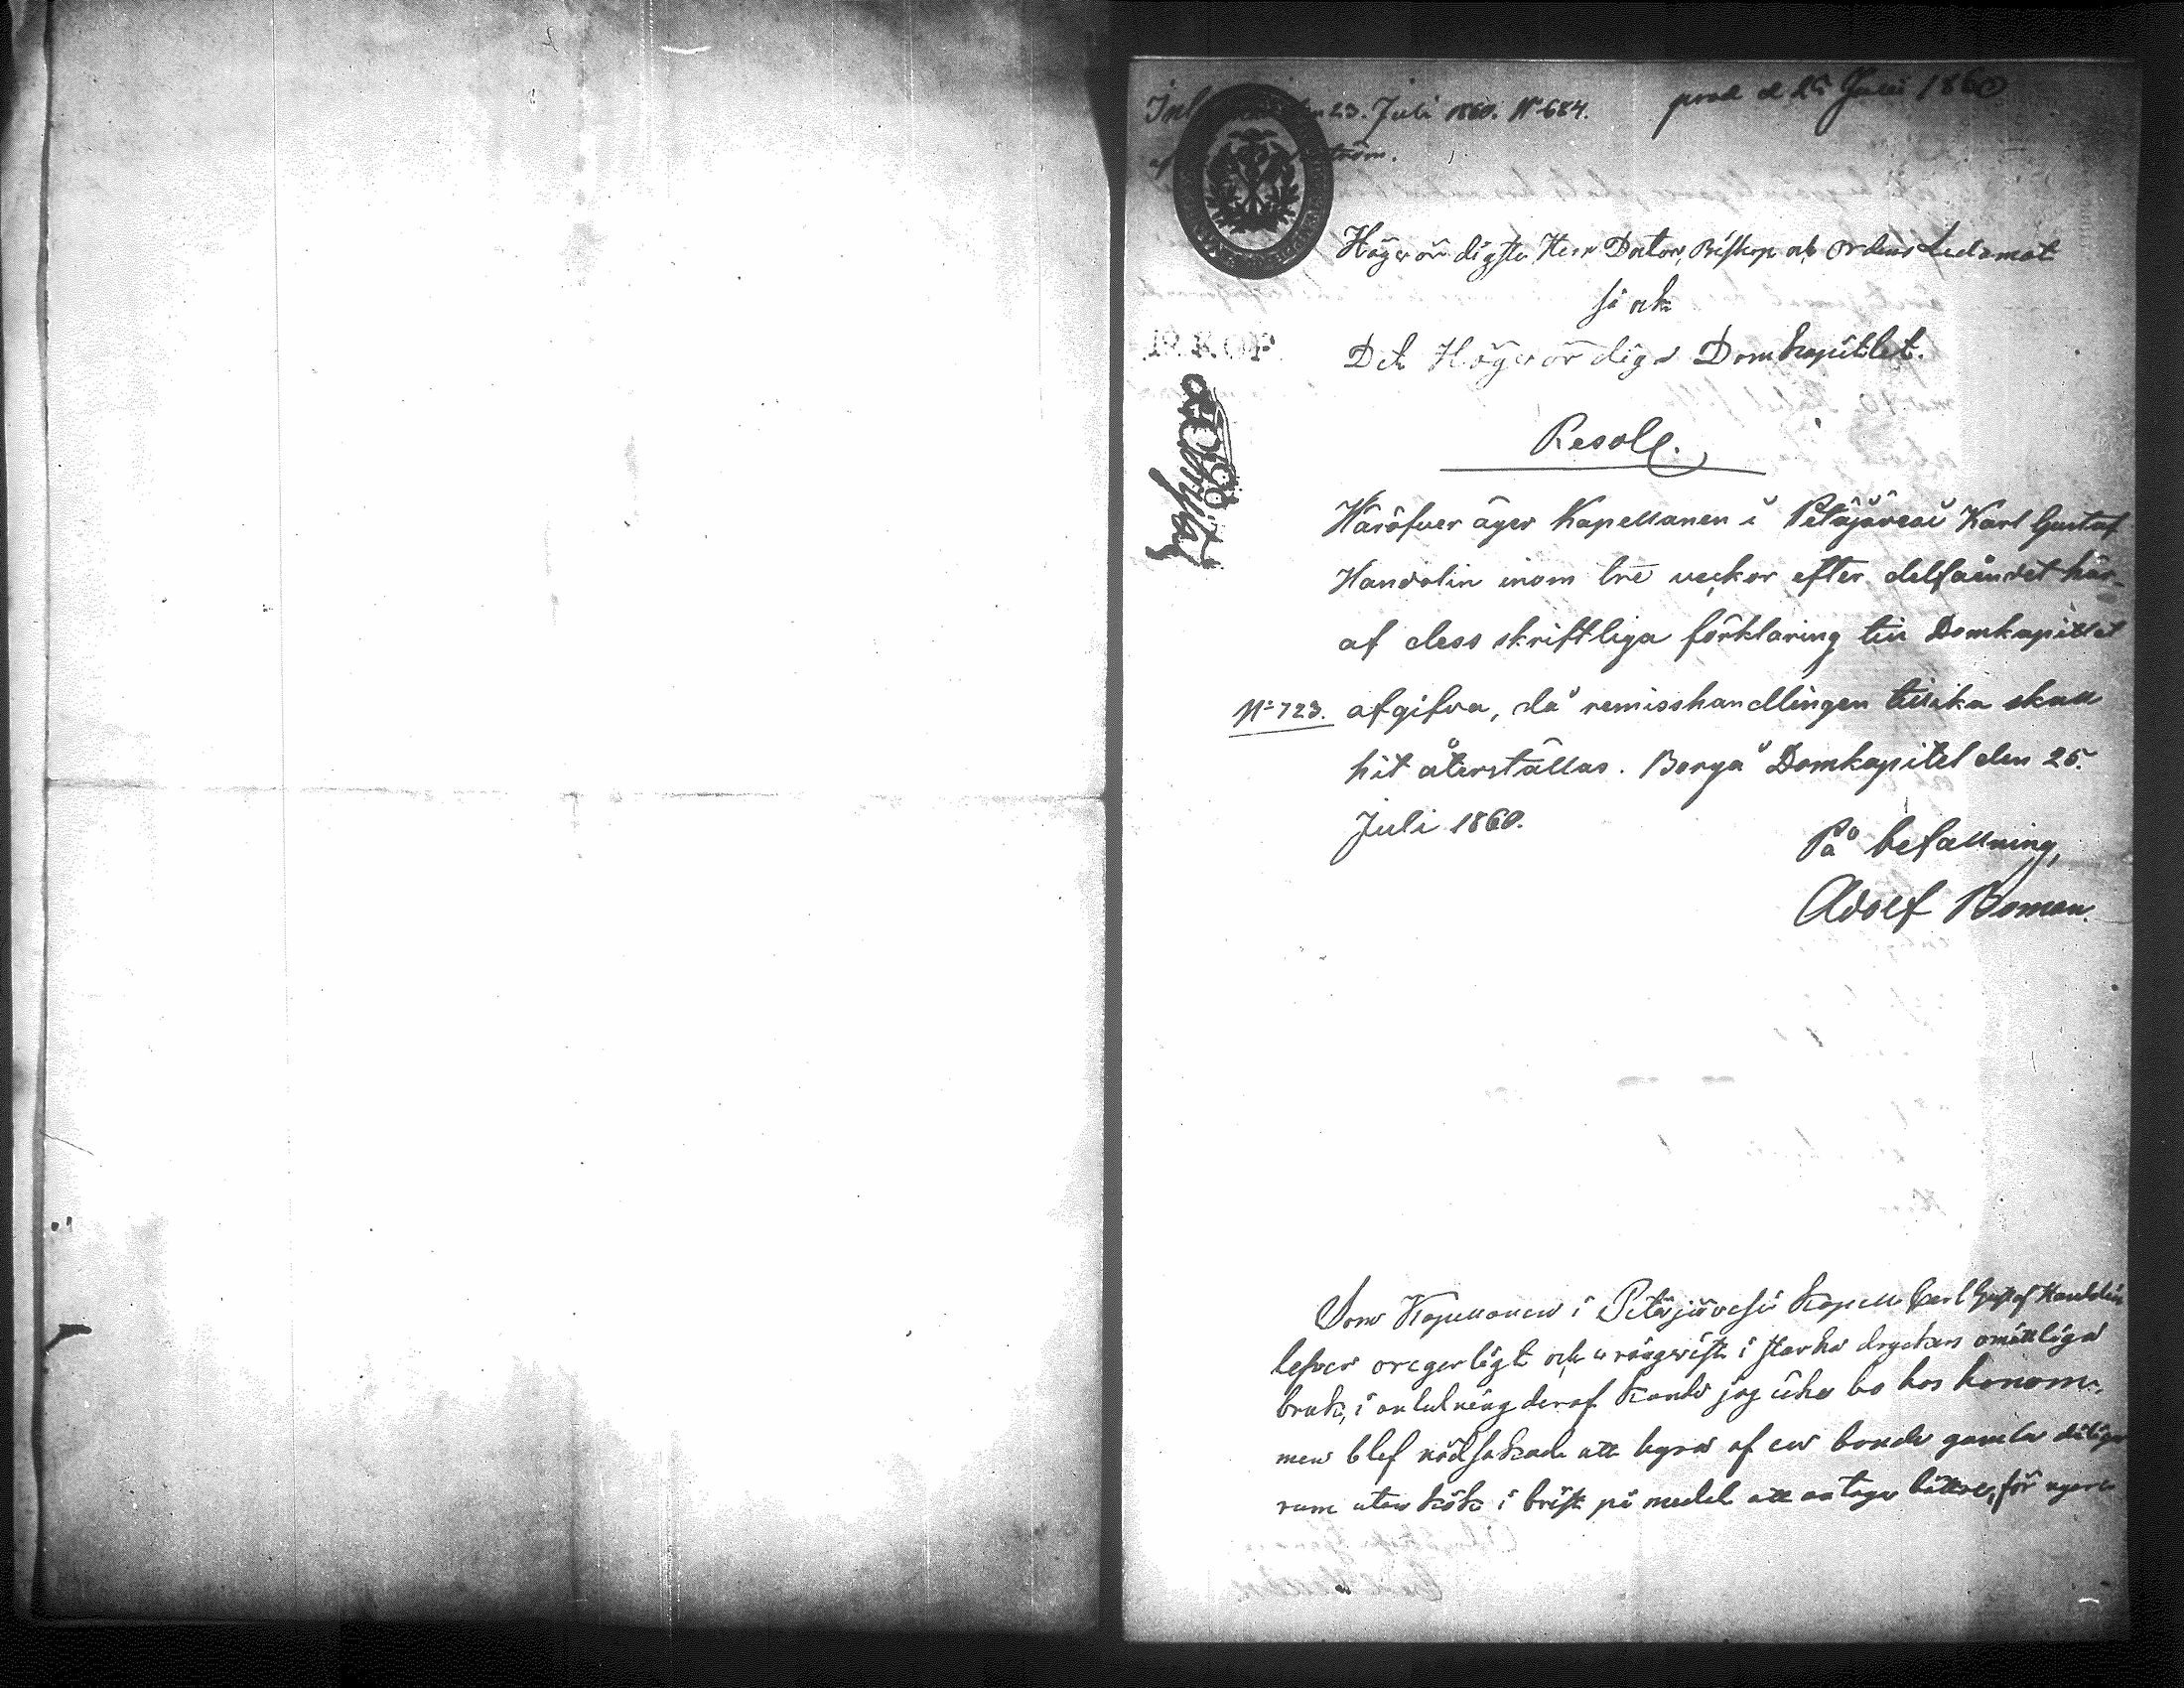 den 23. Juli 1860. No 684.
prod d 25 Juli 1860
Högvördigste Herr Doctor, Biskop och Ordens Ledamot
så ock
Det Högvördiga Domkapitlet.
18. K. COP.
Resol.
Häröfver äger Kapellanen i Petäjävesi Karl Gustaf
Handolin inom tre veckor efter delfåendet här-
af dess skriftliga förklaring till Domkapitlet
No 723. afgifva, då remisshandlingen tillika skall
hit återställas. Borgå Domkapitel den 25.
Juli 1860.
På befallning,
Adolf Boman.
Som Kapellanen i Petäjävesi Kapell Carl Gustaf Handolin
lefver oregerligt och i starka dryckers omåttliga
bruk, i anledning deraf kunde jag icke bo hos honom,
men blef nödsakade att hyra af en bonde gamla dåliga
rum utan kök i brist på medel att antaga bättre, för